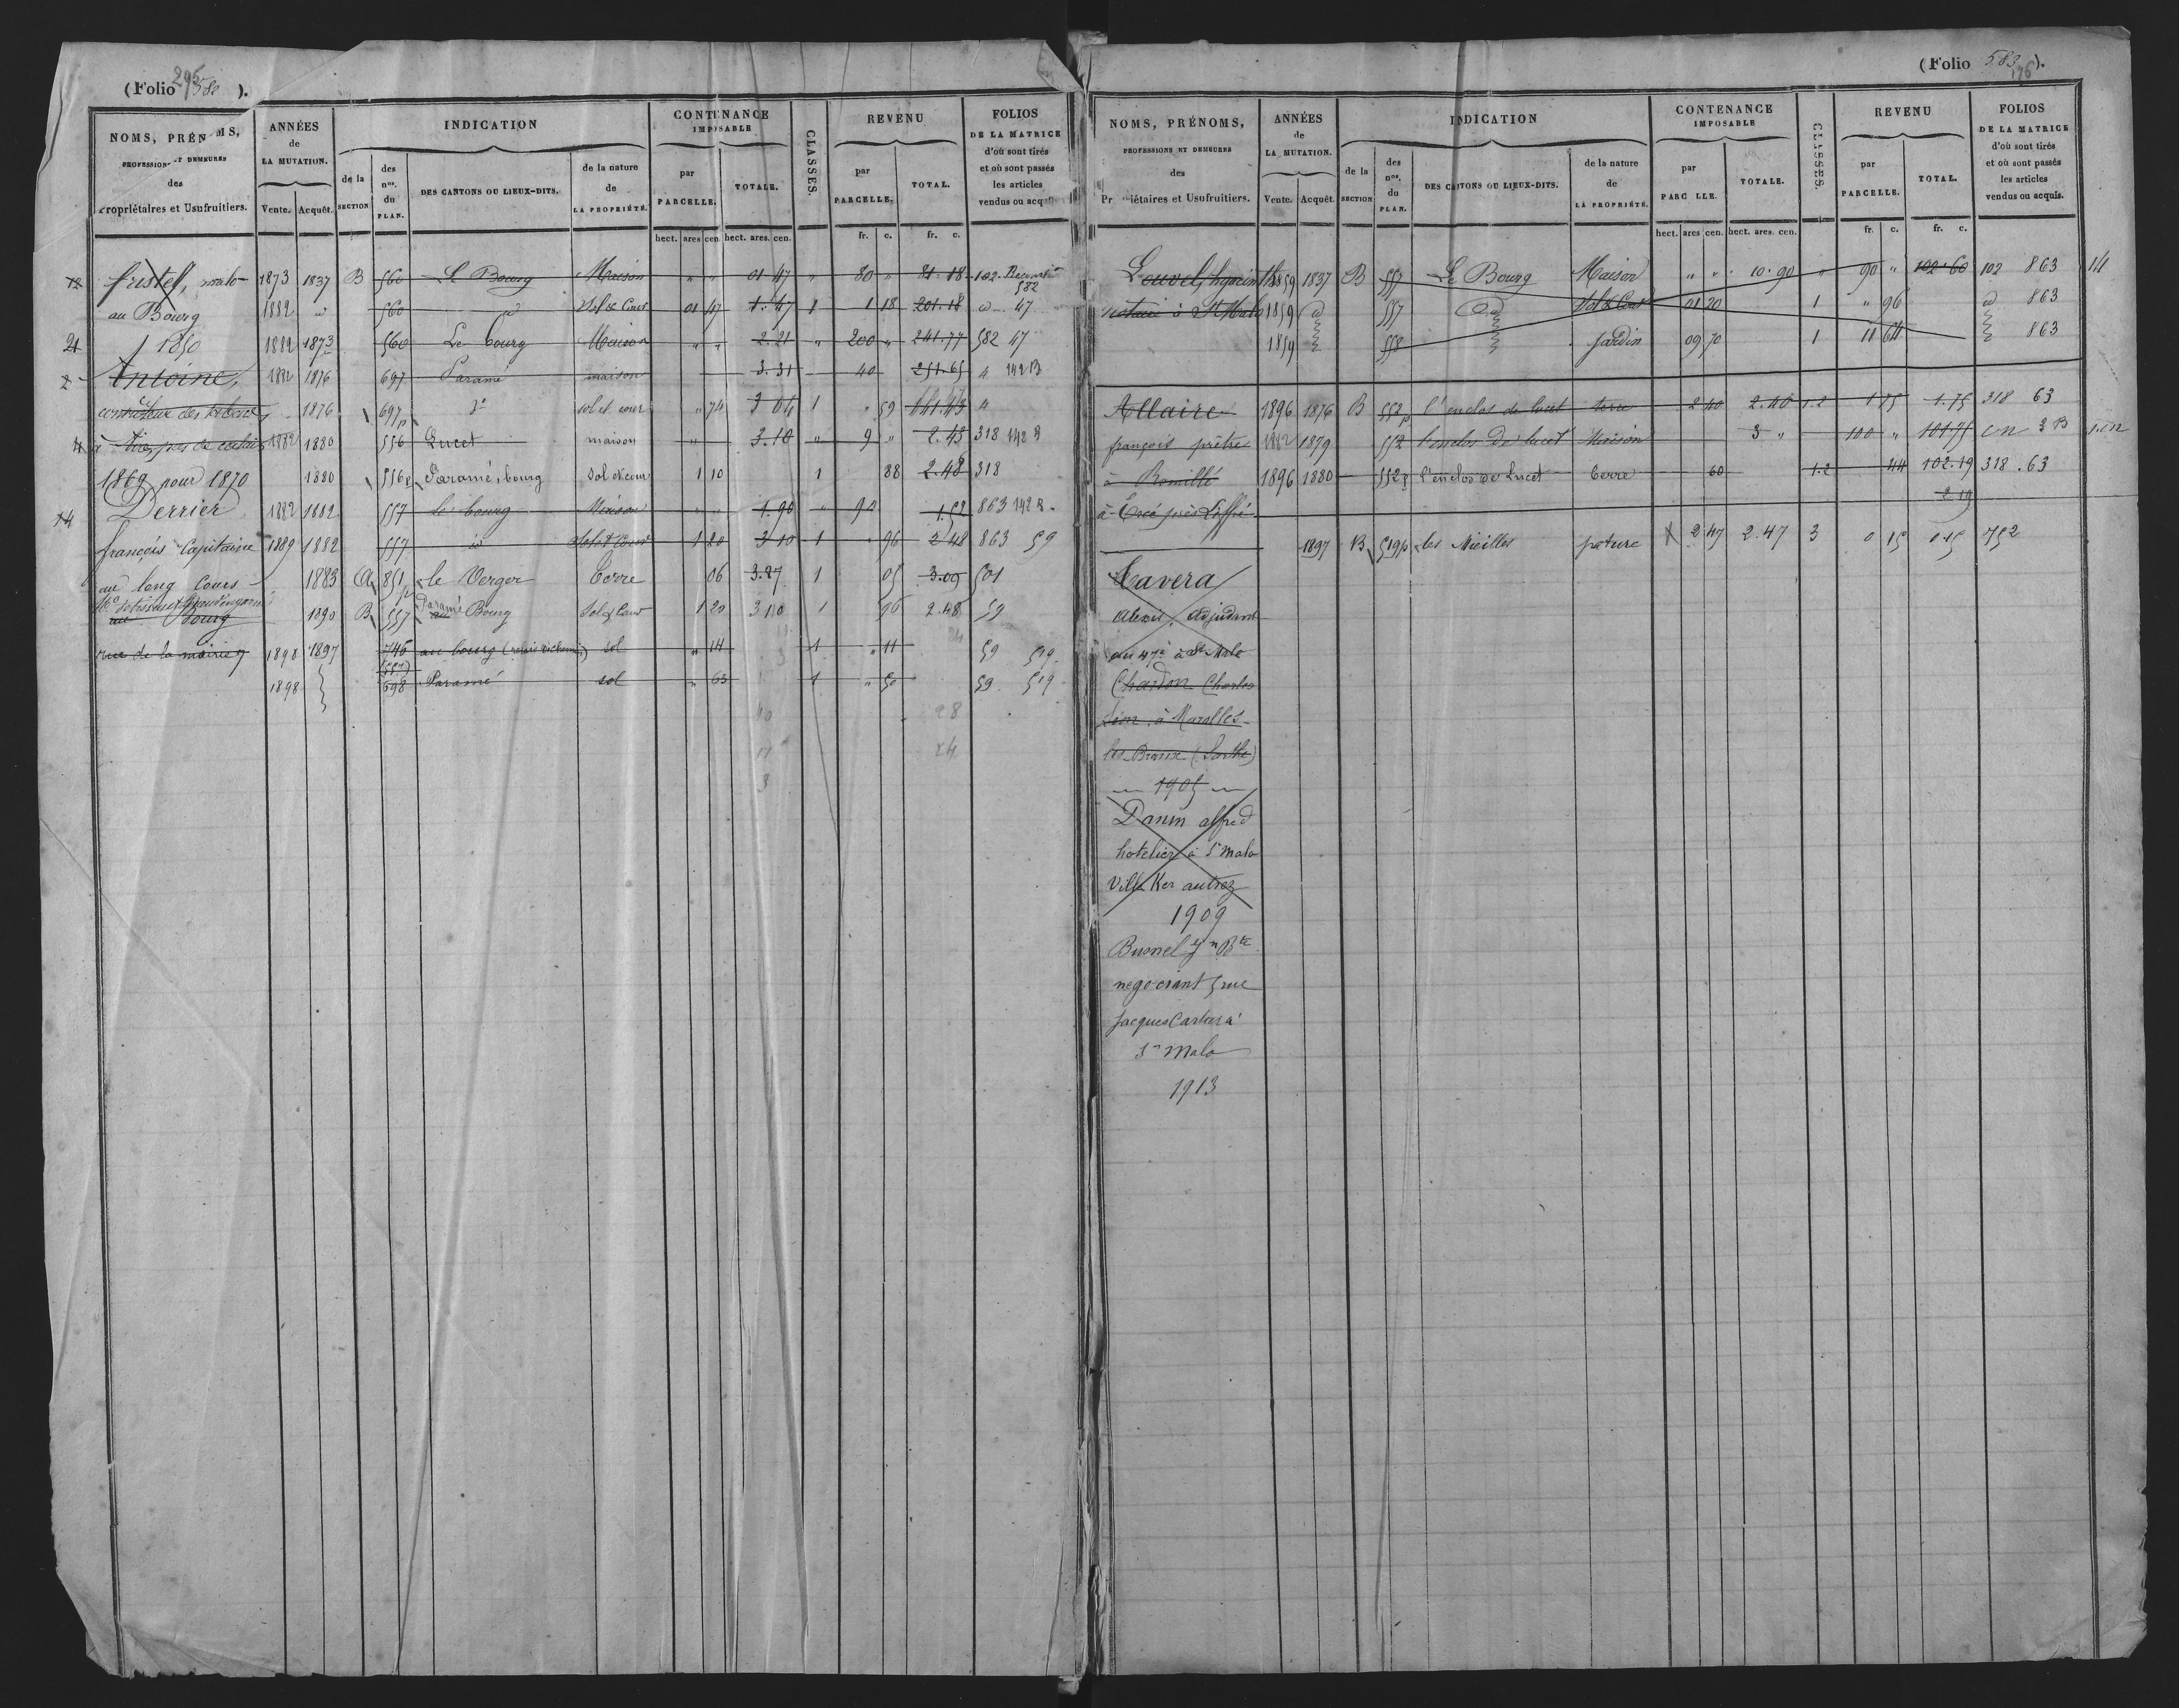 (Folio 582 ).
295
NOMS, PRÉN MS,
PROFESSIONS ET DEMEURES
des
ropriétaires et Usufruitiers.
ANNÉES
de
LA MUTATION.
Vente. Acquêt.
INDICATION
de la
SECTION
des
nos.
du
PLAN.
DES CANTONS OU LIEUX-DITS.
de la nature
de
LA PROPRIÉTÉ.
CONTENANCE
IMPOSABLE
par
PARCELLE.
TOTALE.
hect. ares cen. hect. ares. cen.
CLASSES.
REVENU
par
PARCELLE.
TOTAL.
fr. c. fr. c.
FOLIOS
DE LA MATRICE
d'où sont tirés
et où sont passés
les articles
vendus ou acq
fristel, malo 1873 1837 B 560 Le Bourg Maison " " 01 47 " 80 " 81.18 102
582
au Bourg 1882 id 560 id Sol & Cour 01 47 1.47 1 1 18 201.18 id 47
1850 1882 1873 560 Le bourg Maison " " 2.21 " 200 " 241.77 582 47
Antoine, 1882 1876 697 Paramé maison 3.31 40 251.65 " 142 B
1876 697p do sol et cour " 74 3 04 1 " 59 141.43 "
1882 1880 556 Lucet maison " 3.10 " 9 " 2.43 318 142 B
1869 pour 1870 1880 556p Paramé, bourg Sol et cour 1 10 1 88 2.48 318
Derrier 1882 1882 557 le bourg Maison " " 1.90 " 90 1.52 863 142 B
françois Capitaine 1889 1882 557 id Sol et Cour 1 20 3 10 1 " 96 2 48 863 59
au long cours 1883 A 851p le Verger terre 06 3.27 1 05 3.09 501
au Bourg 1890 B 557 Paramé Bourg Sol & Cour 1 20 310 1 96 2.48 59
rue de la mairie 7 1898 1897 746 au bourg sol " 14 1 " 11 59 519
(557)
1898 698 Paramé sol " 63 1 " 50 59 519
40 28
17 24
3
(Folio 583 ).
176
NOMS, PRÉNOMS,
PROFESSIONS ET DEMEURES
des
Pr iétaires et Usufruitiers.
ANNÉES
de
LA MUTATION.
Vente. Acquêt.
INDICATION
de la
SECTION
des
nos.
du
PLAN.
DES CANTONS OU LIEUX-DITS.
de la nature
de
LA PROPRIÉTÉ.
CONTENANCE
IMPOSABLE
par
PARC LLE.
TOTALE.
hect. ares cen. hect. ares. cen.
CLASSES
REVENU
par
PARCELLE.
TOTAL.
fr. c. fr. c.
FOLIOS
DE LA MATRICE
d'où sont tirés
et où sont passés
les articles
vendus ou acquis.
Louvel, 1859 1837 B 557 Le Bourg Maison " " 10.90 " 90 " 102.60 102 863 14
notaire à St Malo 1859 id 557 id Sol & Cour 01 20 1 " 96 id 863
1859 558 Jardin 09 70 1 11 64 863
Allaire 1896 1876 B 552p l'enclos de lucet terre 2 40 2.40 1.2 1 75 1.75 318 63
françois prêtre 1882 1879 552 l'enclos de lucet Maison 3 " 100 " 101.75 C.N 3 B
à Romillé 1896 1880 552p l'enclos de Lucet terre 60 1.2 44 102.19 318 . 63
2 19
1897 B 519p les Nielles pature X 2 47 2.47 3 0 15 0 15 752
Tavera
Alexis, Adjudant
au 47e à St Malo
Chardon Charles
Léon, à Marolles
les Braux (Sarthe)
1905
Danin alfred
hotelier à St malo
Villa Ker autrez
1909
Busnel Jn Bte
negociant 5 rue
Jacques Cartier à
St Malo
1913